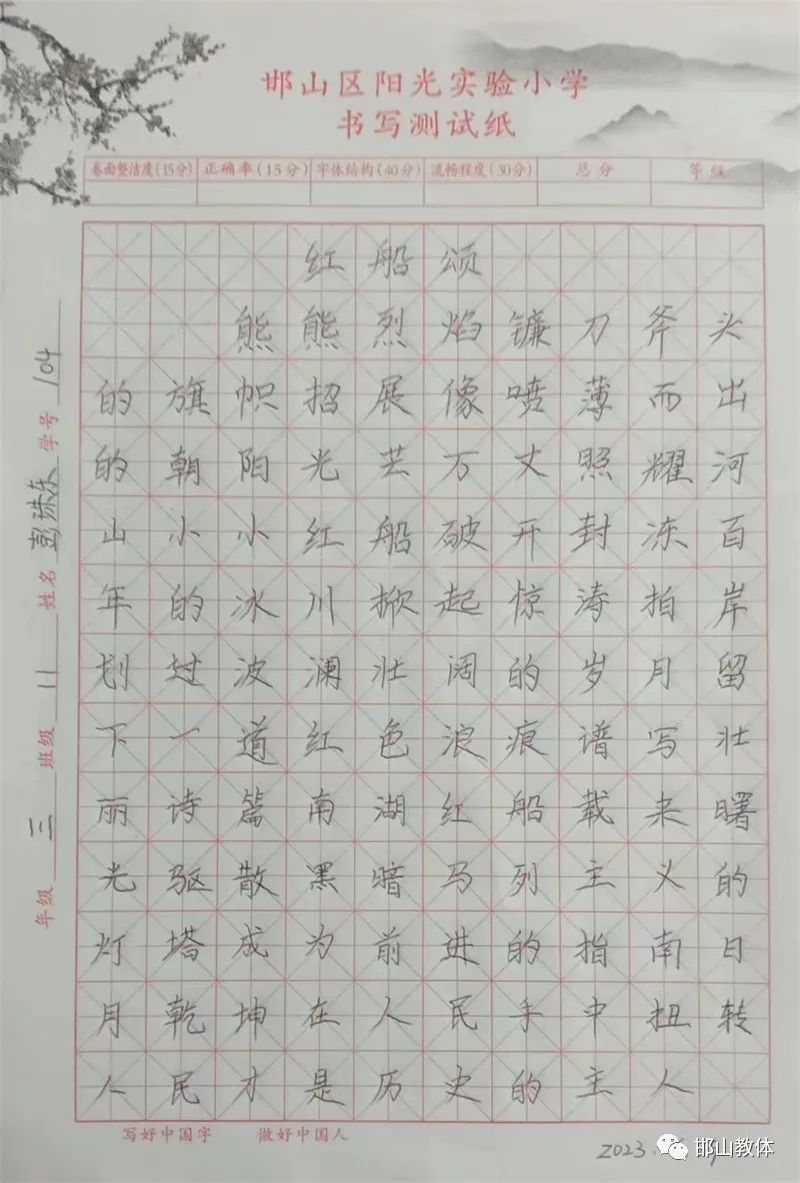 邯山区阳光实验小学
书写测试纸
卷面整洁度(15分) 正确率(15分) 字体结构(40分) 流畅程度(30分) 总分 等级
红船颂
熊熊烈焰镰刀斧头
的旗帜招展像喷薄而出
的朝阳光芒万丈照耀河
山小小红船破开封冻百
年的冰川掀起惊涛拍岸
划过波澜壮阔的岁月留
下一道红色浪痕谱写壮
丽诗篇南湖红船载来曙
光驱散黑暗马列主义的
灯塔成为前进的指南日
月乾坤在人民手中扭转
人民才是历史的主人
年级 三 班级 11 姓名 彭珠东 学号 104
写好中国字 做好中国人
2023.
邯山教体